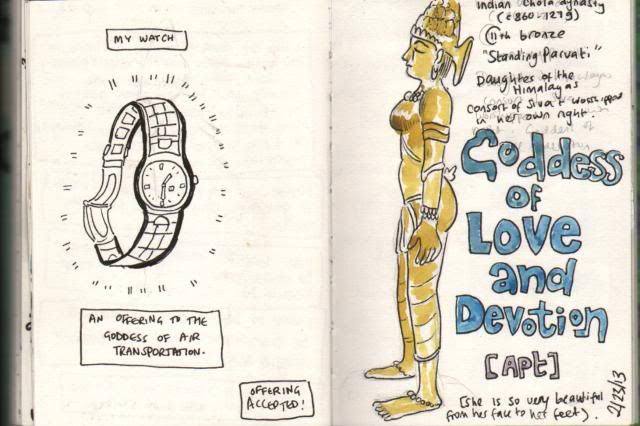 MY WATCH
AN OFFERING TO THE
GODDESS OF AIR
TRANSPORTATION.
OFFERING
ACCEPTED!
Indian Chola dynasty
(c 860-1279)
11th bronze
"Standing Parvati"
Daughter of the
Himalayas
consort of Siva & worshipped
in her own right.
Goddess
OF
Love
and
Devotion
[APT]
(she is so very beautiful
from her face to her feet).
2/23/13